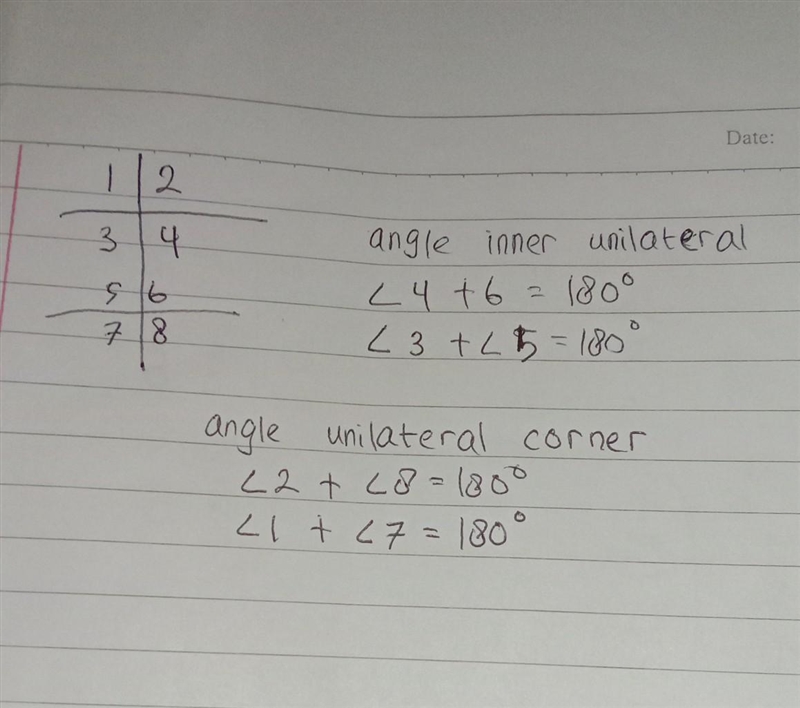 Date:
1 2
3 4
5 6
7 8
angle inner unilateral
∠4 + 6 = 180°
∠3 + ∠5 = 180°
angle unilateral corner
∠2 + ∠8 = 180°
∠1 + ∠7 = 180°